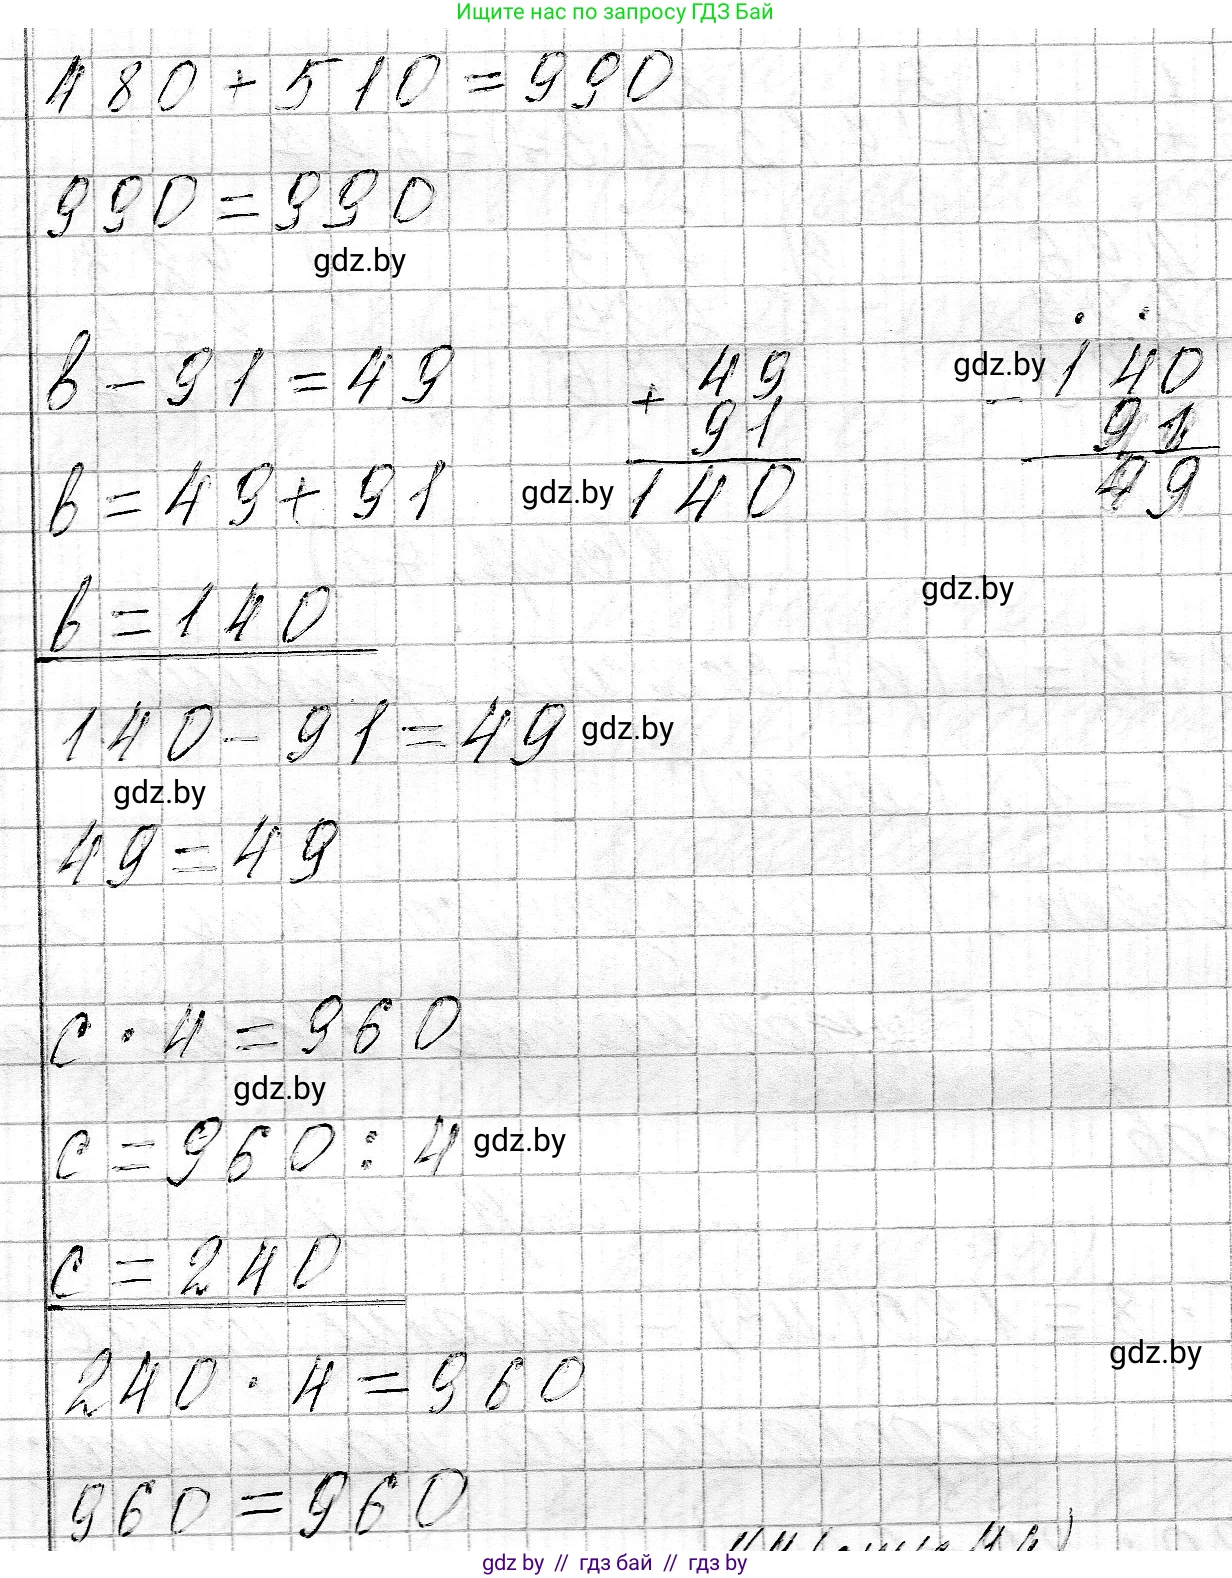 Ищите нас по запросу ГДЗ Бай
480 + 510 = 990
990 = 990
gdz.by
в - 91 = 49
+ 49
91
140
gdz.by
- 140
91
49
в = 49 + 91
gdz.by
в = 140
gdz.by
140 - 91 = 49
gdz.by
gdz.by
49 = 49
с · 4 = 960
gdz.by
с = 960 : 4
gdz.by
с = 240
240 · 4 = 960
gdz.by
960 = 960
gdz.by // гдз бай // gdz.by